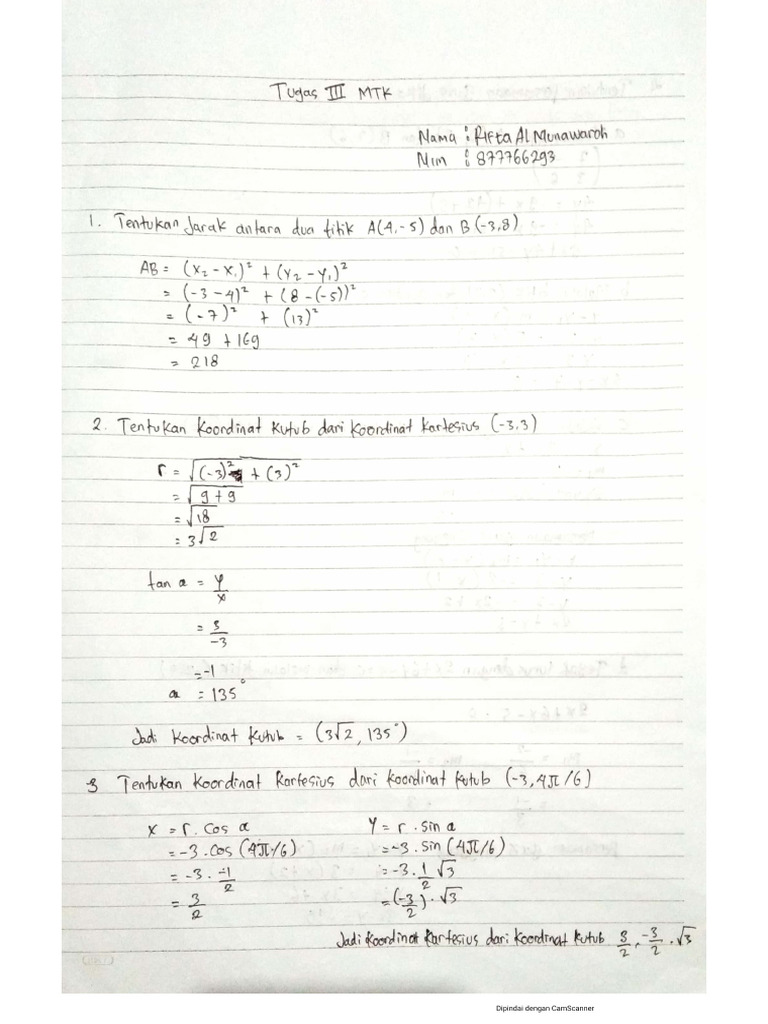 Tugas III MTK
Nama : Rifta Al Munawaroh
Nim : 877766293
1. Tentukan Jarak antara dua titik A(4,-5) dan B(-3,8)
AB = (x₂ - x₁)² + (y₂ - y₁)²
= (-3-4)² + (8-(-5))²
= (-7)² + (13)²
= 49 + 169
= 218
2. Tentukan Koordinat Kutub dari Koordinat Kartesius (-3,3)
r = √(-3)² + (3)²
= √9+9
= √18
= 3√2
tan a = y/x
= 3/-3
= -1
a = 135°
Jadi Koordinat Kutub = (3√2, 135°)
3 Tentukan Koordinat Kartesius dari Koordinat Kutub (-3, 4π/6)
x = r. cos a y = r. sin a
= -3. cos (4π/6) = -3. sin (4π/6)
= -3. -1/2 = -3. 1/2 √3
= 3/2 = (-3/2). √3
Jadi Koordinat Kartesius dari Koordinat Kutub 3/2, -3/2 . √3
Dipindai dengan CamScanner